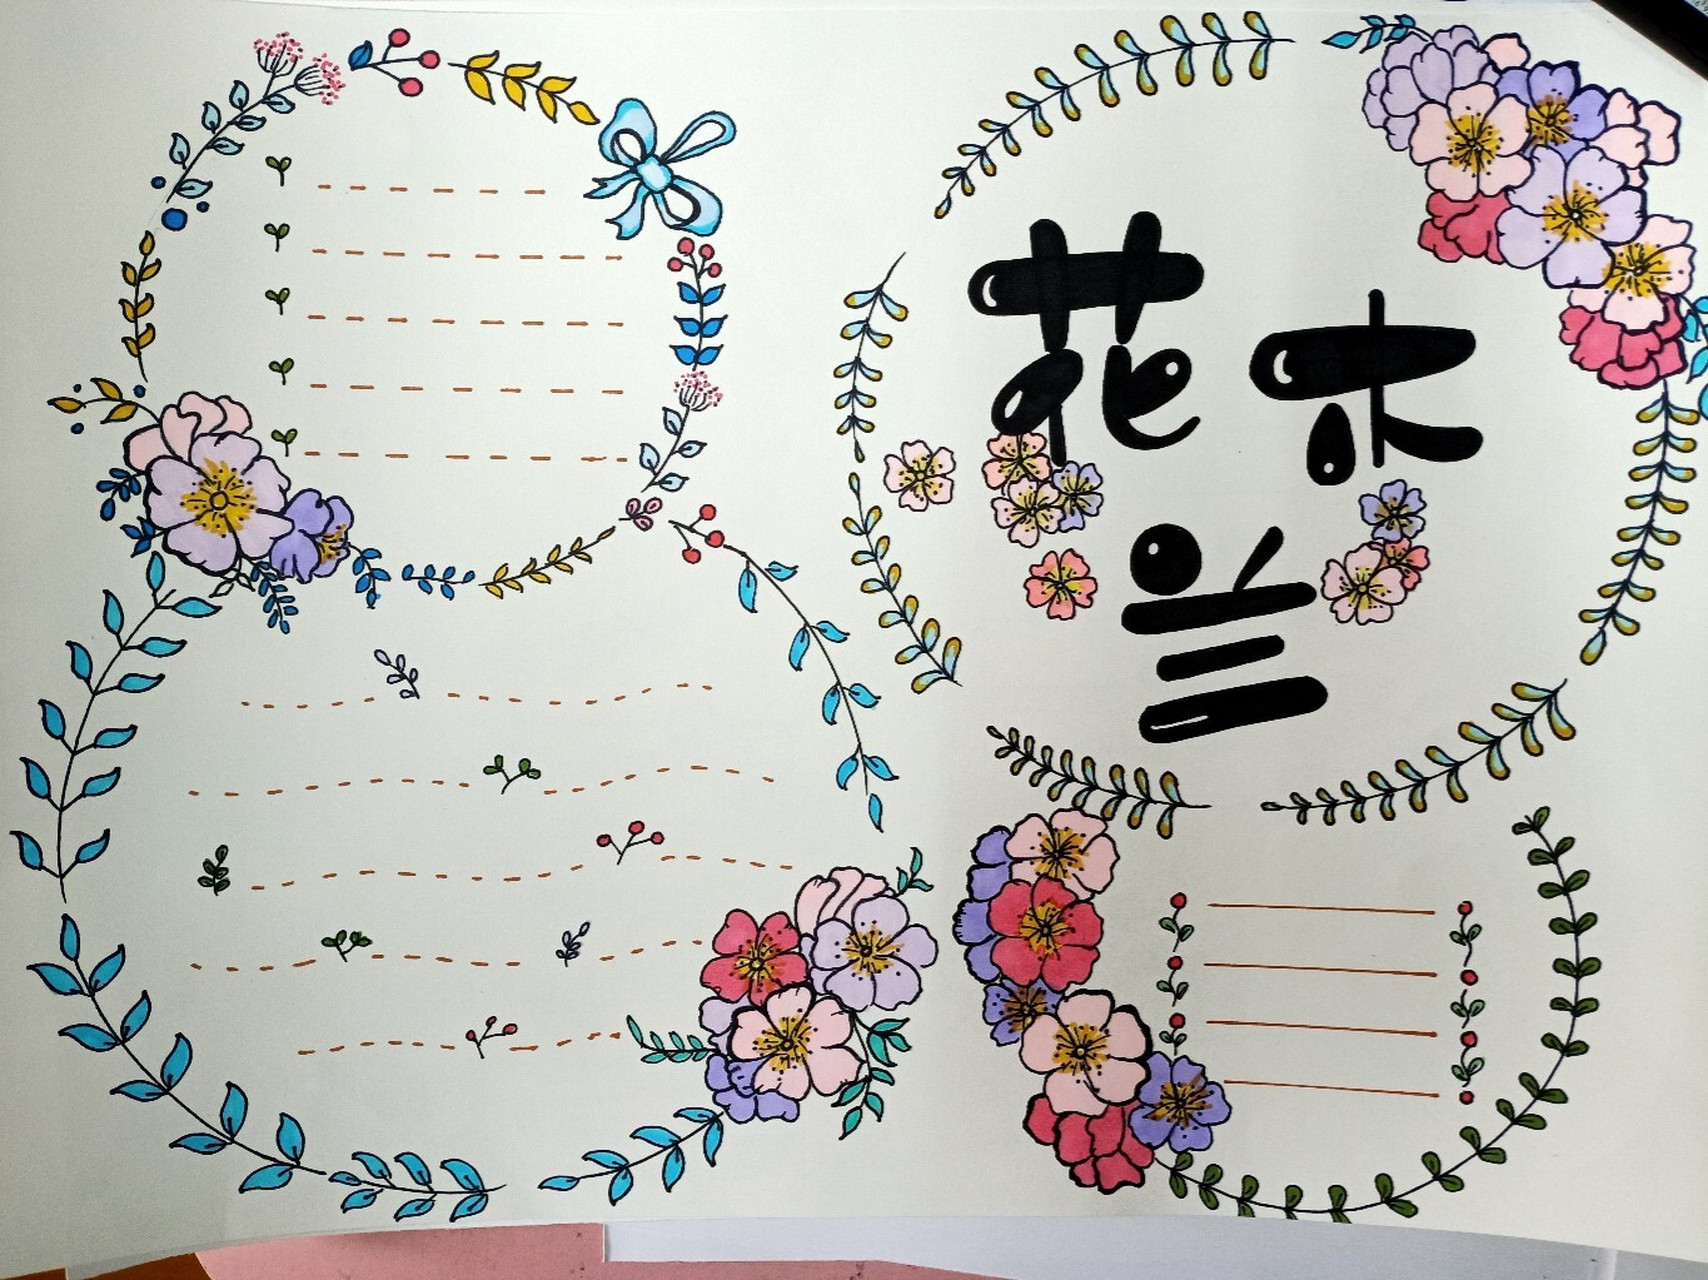 花木
兰